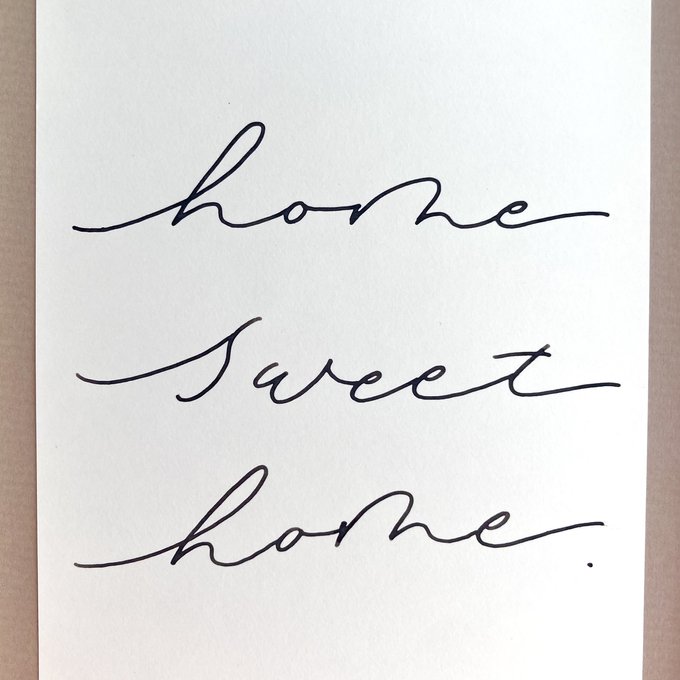 home
sweet
home.